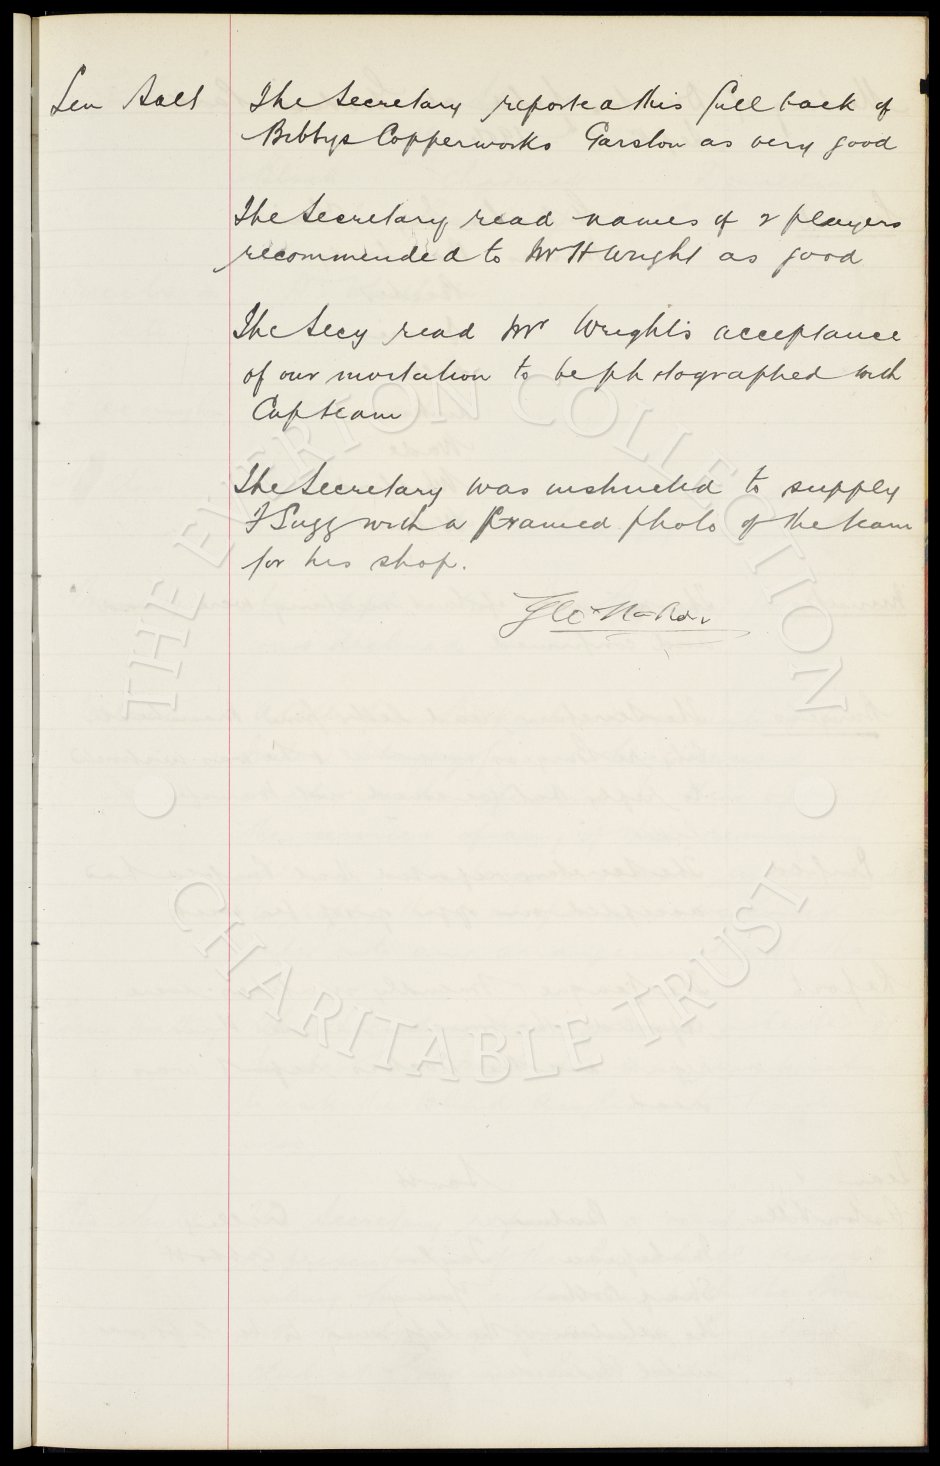 Len Salt The Secretary reported this full back of
Bibbys Copperworks Garston as very good
The Secretary read names of 2 players
recommended to Mr H Wright as good
The Secy read Mr Wright's acceptance
of our invitation to be photographed with
Cup team
The Secretary was instructed to supply
F Sugg with a framed photo of the team
for his shop.
THE EVERTON COLLECTION
CHARITABLE TRUST